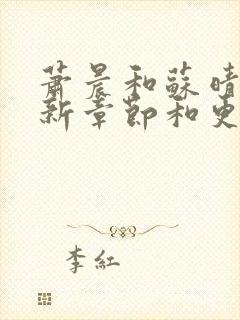 蕭晨和蘇晴
新章節和更
李紅